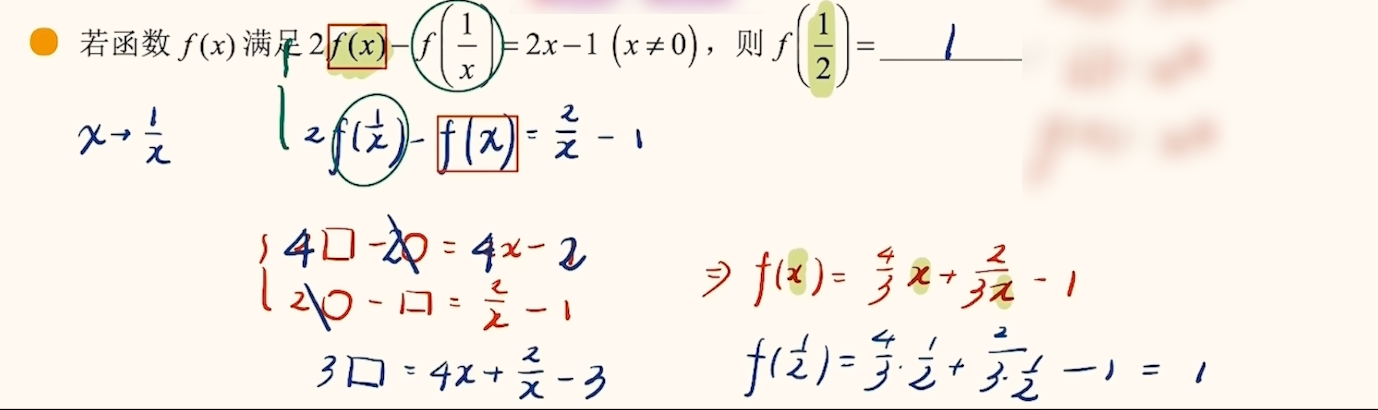 若函数 f(x) 满足 2f(x) − f(1/x) = 2x − 1 (x ≠ 0)，则 f(1/2) = 1
x → 1/x
2f(1/x) − f(x) = 2/x − 1
4□ − 2○ = 4x − 2
2○ − □ = 2/x − 1
3□ = 4x + 2/x − 3
⇒ f(x) = 4/3 x + 2/3x − 1
f(1/2) = 4/3 · 1/2 + 2/3·1/2 − 1 = 1